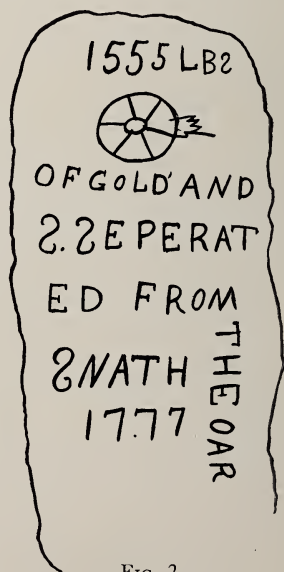 1555 LBS
OF GOLD' AND
S. SEPERAT
ED FROM
THE OAR
SNATH
17.77
FIG. 2